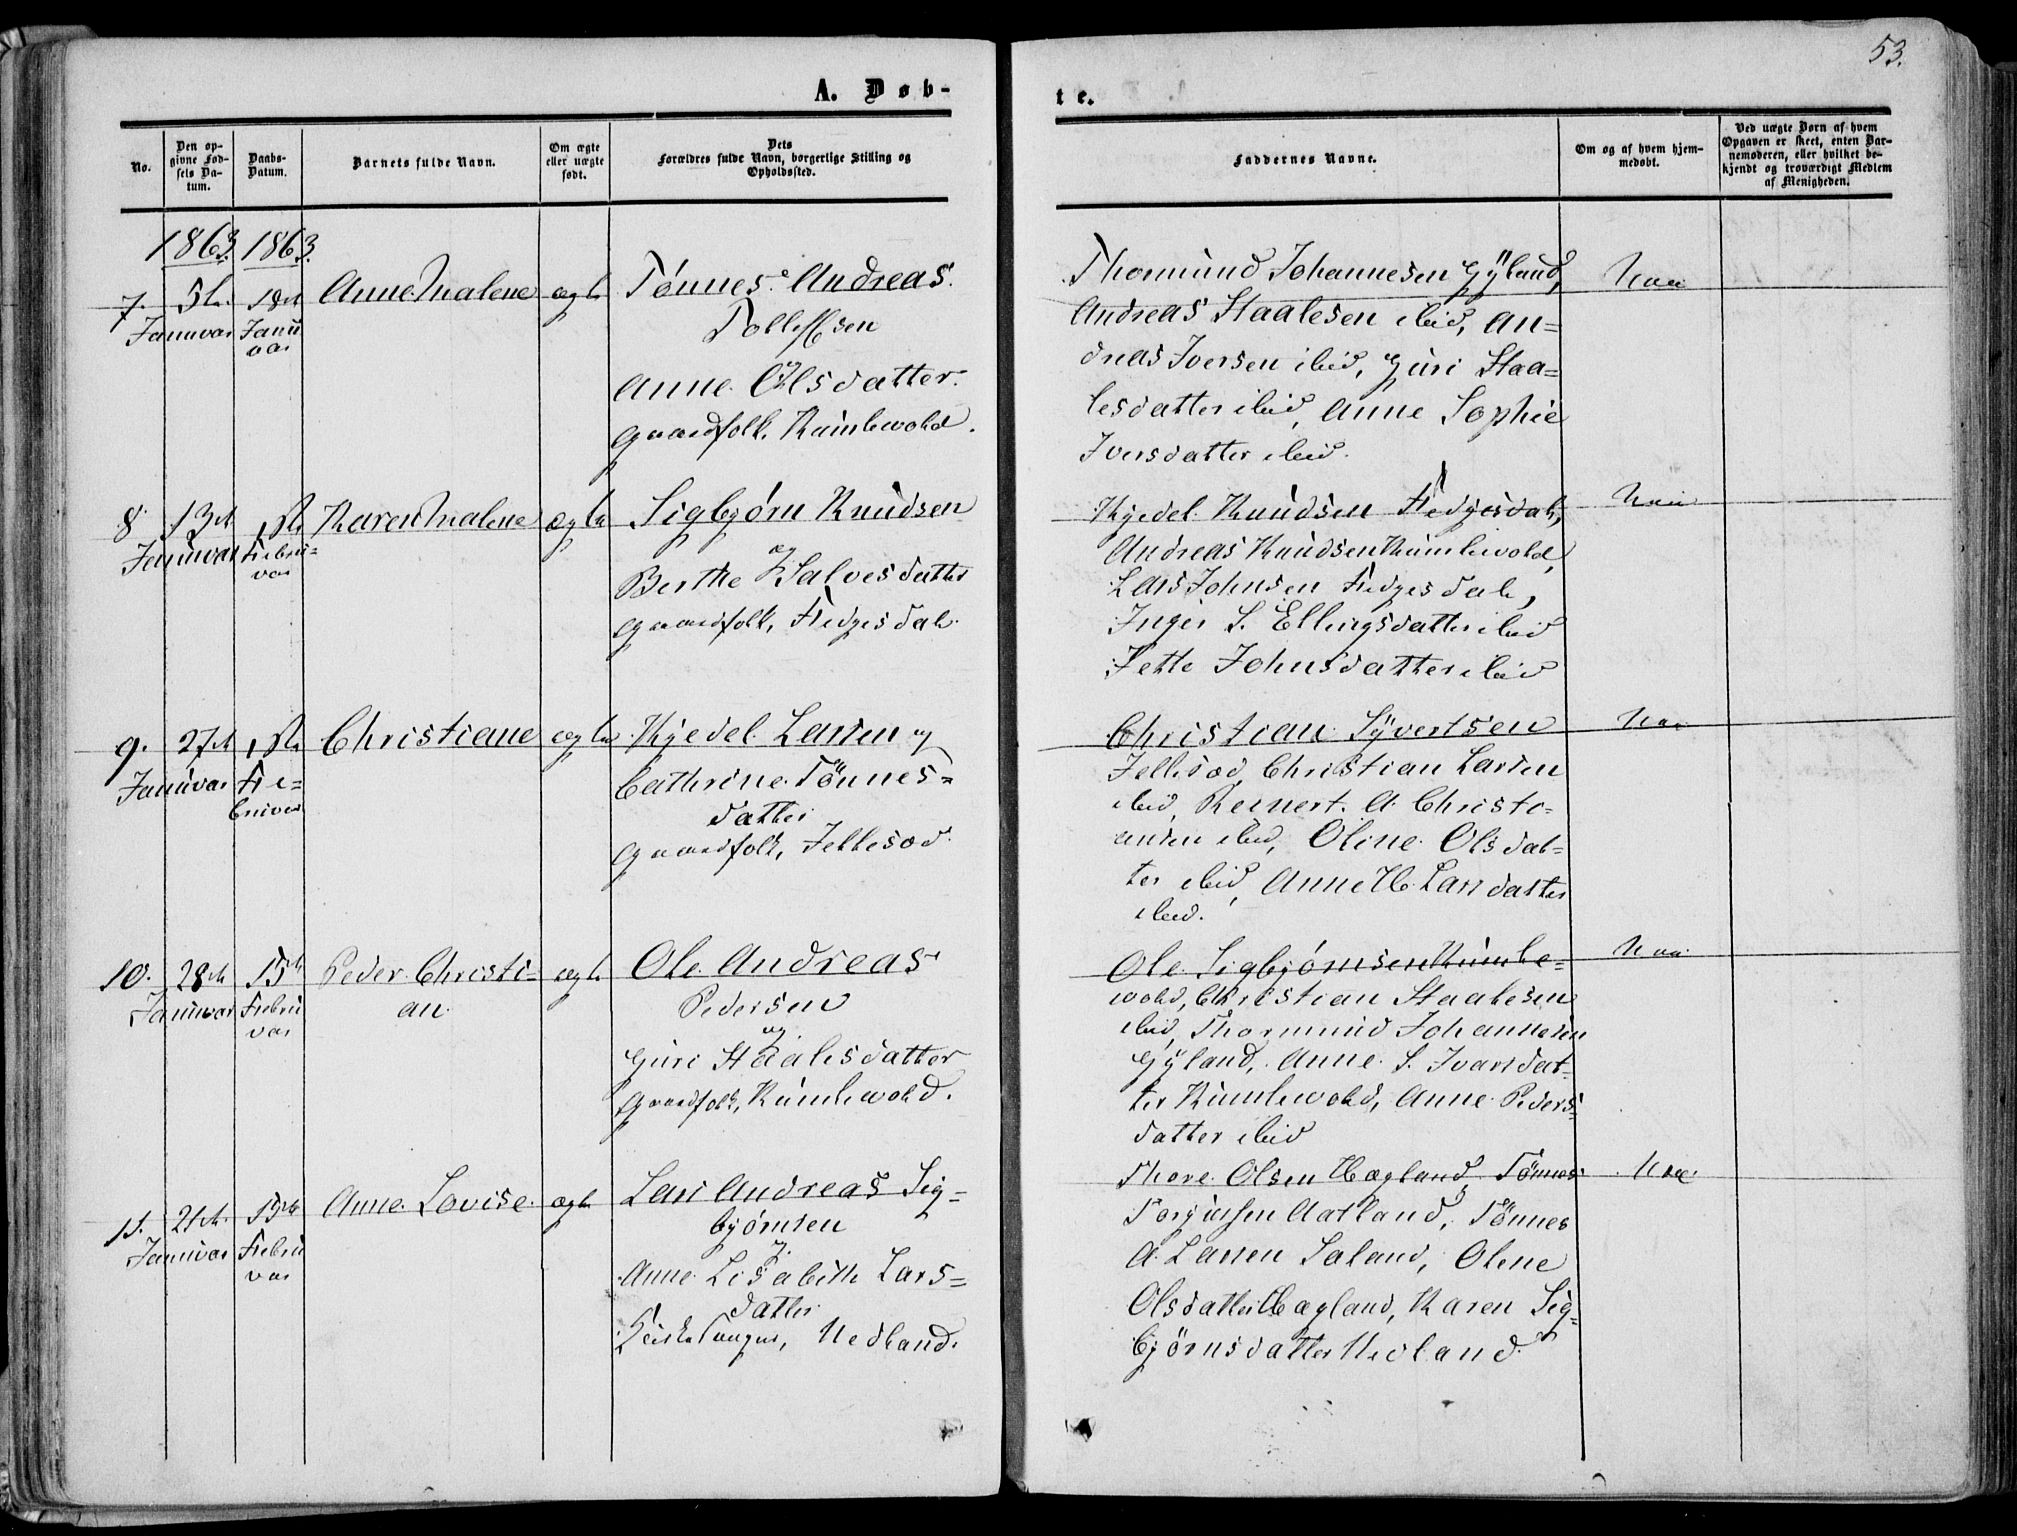 53.
A. Døb-
te.
No.
Den op-
givne Fød-
sels Da-
tum.
Daabs-
Datum.
Barnets fulde Navn.
Om ægte
eller uægte
født.
Dets
Forældres fulde Navn, borgerlige Stilling og
Opholdssted.
Faddernes Navne.
Om og af hvem hjem-
medøbt.
Ved uægte Børn af hvem
Opgaven er skeet, enten Bar-
nemoderen, eller hvilket be-
kjendt og troværdigt Medlem
af Menigheden.
1863. 1863.
7. 5te
Januvar
18de
Janu
var
Anne Malene
ægte
Tönnes Andreas
Tollefsen
og
Anne Olsdatter
Gaardfolk, Rumlewold.
Thormund Johannesen Gÿland,
Andreas Staalesen ibid, An=
dreas Iversen ibid, Guri Staa=
lesdatter ibid, Anne Sophie
Iversdatter ibid.
8 13de
Januvar
1ste
Febru=
var
Karen Malene
ægte
Sigbjørn Knudsen
og
Berthe Salvesdatter
Gaardfolk, Fidjesdale.
Kjedel Knudsen Fidjesdale,
Andreas Knudsen Rumlewold,
Lars Johnsen Fidjesdale,
Inger S. Ellingsdatter ibid
Jette Johnsdatter ibid
9. 27de
Januvar
1ste
Fe=
bruvar
Christiane
ægte
Kjedel Larsen og
Cathrine Tönnes=
datter
Gaardfolk, Jellesød.
Christian Sÿvertsen
Jellesød, Christian Larsen
ibid, Reinert A. Christi=
ansen ibid, Oline Olsdat=
ter ibid, Anne H. Larsdatter
ibid.
10. 28de
Januvar
15de
Febru
var
Peder Christi=
an.
ægte
Ole Andreas
Pedersen
og
Guri Staalesdatter
Gaardfolk, Rumlewold.
Ole Sigbjørnsen Rumle=
wold, Christian Staalesen
ibid, Thormund Johannesen
Gÿland, Anne S. Ivarsdat=
ter Rumlewold, Anne Peders=
datter ibid
11. 21de
Januvar
15de
Febru
var
Anne Lovise
ægte
Lars Andreas Sig=
bjørnsen
og
Anne Lisabeth Lars=
datter
Kirkesanger, Nedland.
Thore Olsen Hægland, Tönnes
Torjussen Aatland, Tönnes
A. Larsen Saland, Olene
Olsdatter Hægland, Karen Sig=
bjørnsdatter Nedland.